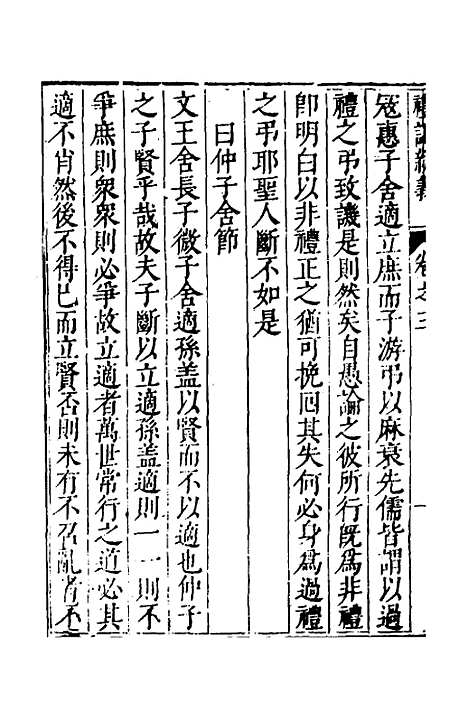 禮記纂義 卷之三 一
寇惠子舍適立庶而子游弔以麻衰先儒皆謂以過
禮之弔致譏是則然矣自愚論之彼所行旣爲非禮
卽明白以非禮正之猶可挽回其失何必身爲過禮
之弔耶聖人斷不如是
曰仲子舍節
文王舍長子微子舍適孫盖以賢而不以適也仲子
之子賢乎哉故夫子斷以立適孫盖適則一一則不
爭庶則衆衆則必爭故立適者萬世常行之道必其
適不肖然後不得已而立賢否則未有不召亂者不